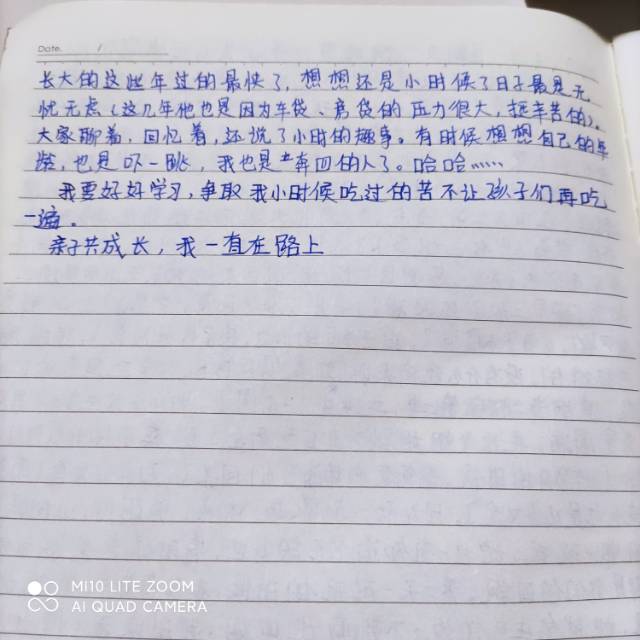 Date. /
长大的这些年过的最快了,想想还是小时候了日子最是无
忧无虑(这几年他也是因为车贷、房贷的压力很大,挺辛苦的)。
大家聊着,回忆着,还说了小时的趣事。有时候想想自己的年
龄,也是吓一跳,我也是奔四的人了。哈哈……
我要好好学习,争取我小时候吃过的苦不让孩子们再吃
一遍。
亲子共成长,我一直在路上
MI 10 LITE ZOOM
AI QUAD CAMERA